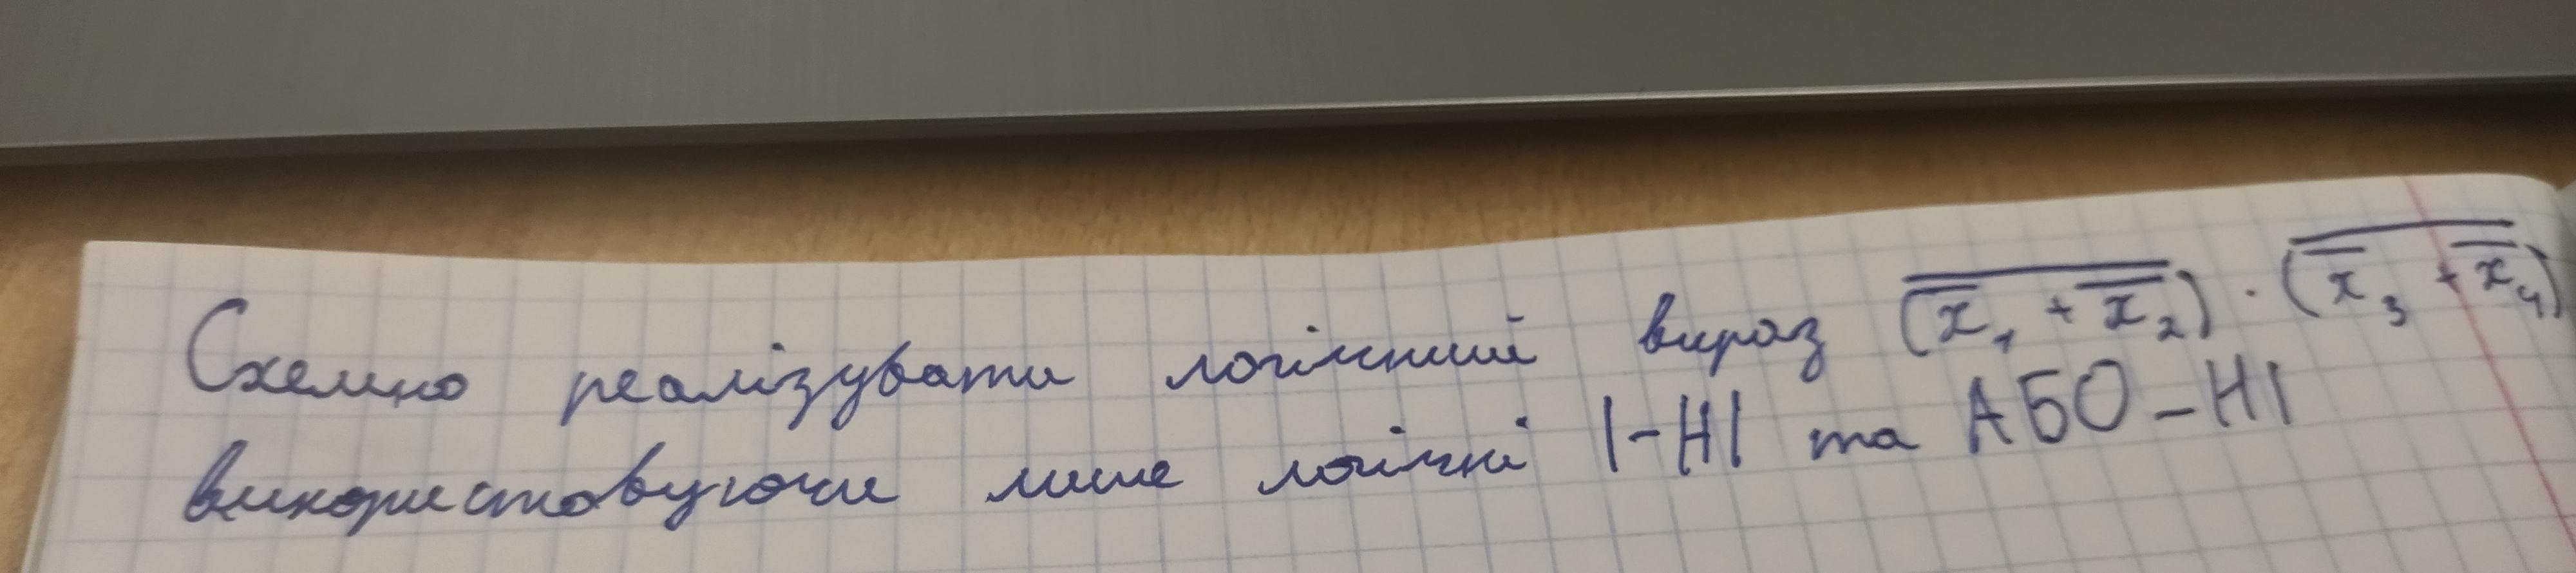 Схемно реалізувати логічний вираз (x̅₁ + x̅₂)̅ · (x̅₃ + x̅₄)̅
використовуючи лише логічні І-НІ та АБО-НІ